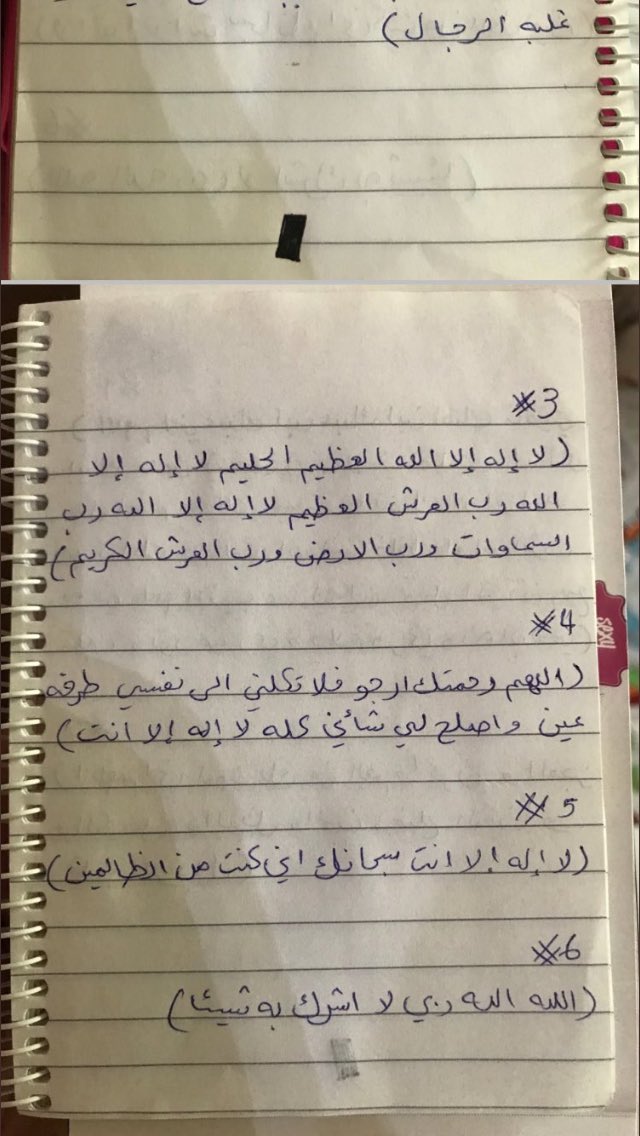 غلبه الرجال)
#3
(لا إله إلا الله العظيم الحليم لا إله إلا
الله رب العرش العظيم لا إله إلا الله رب
السماوات ورب الارض ورب العرش الكريم)
#4
(اللهم رحمتك ارجو فلا تكلني الى نفسي طرفه
عين واصلح لي شأني كله لا إله إلا انت)
#5
(لا إله إلا انت سبحانك اني كنت من الظالمين)
#6
(الله الله ربي لا اشرك به شيئا)
sexy